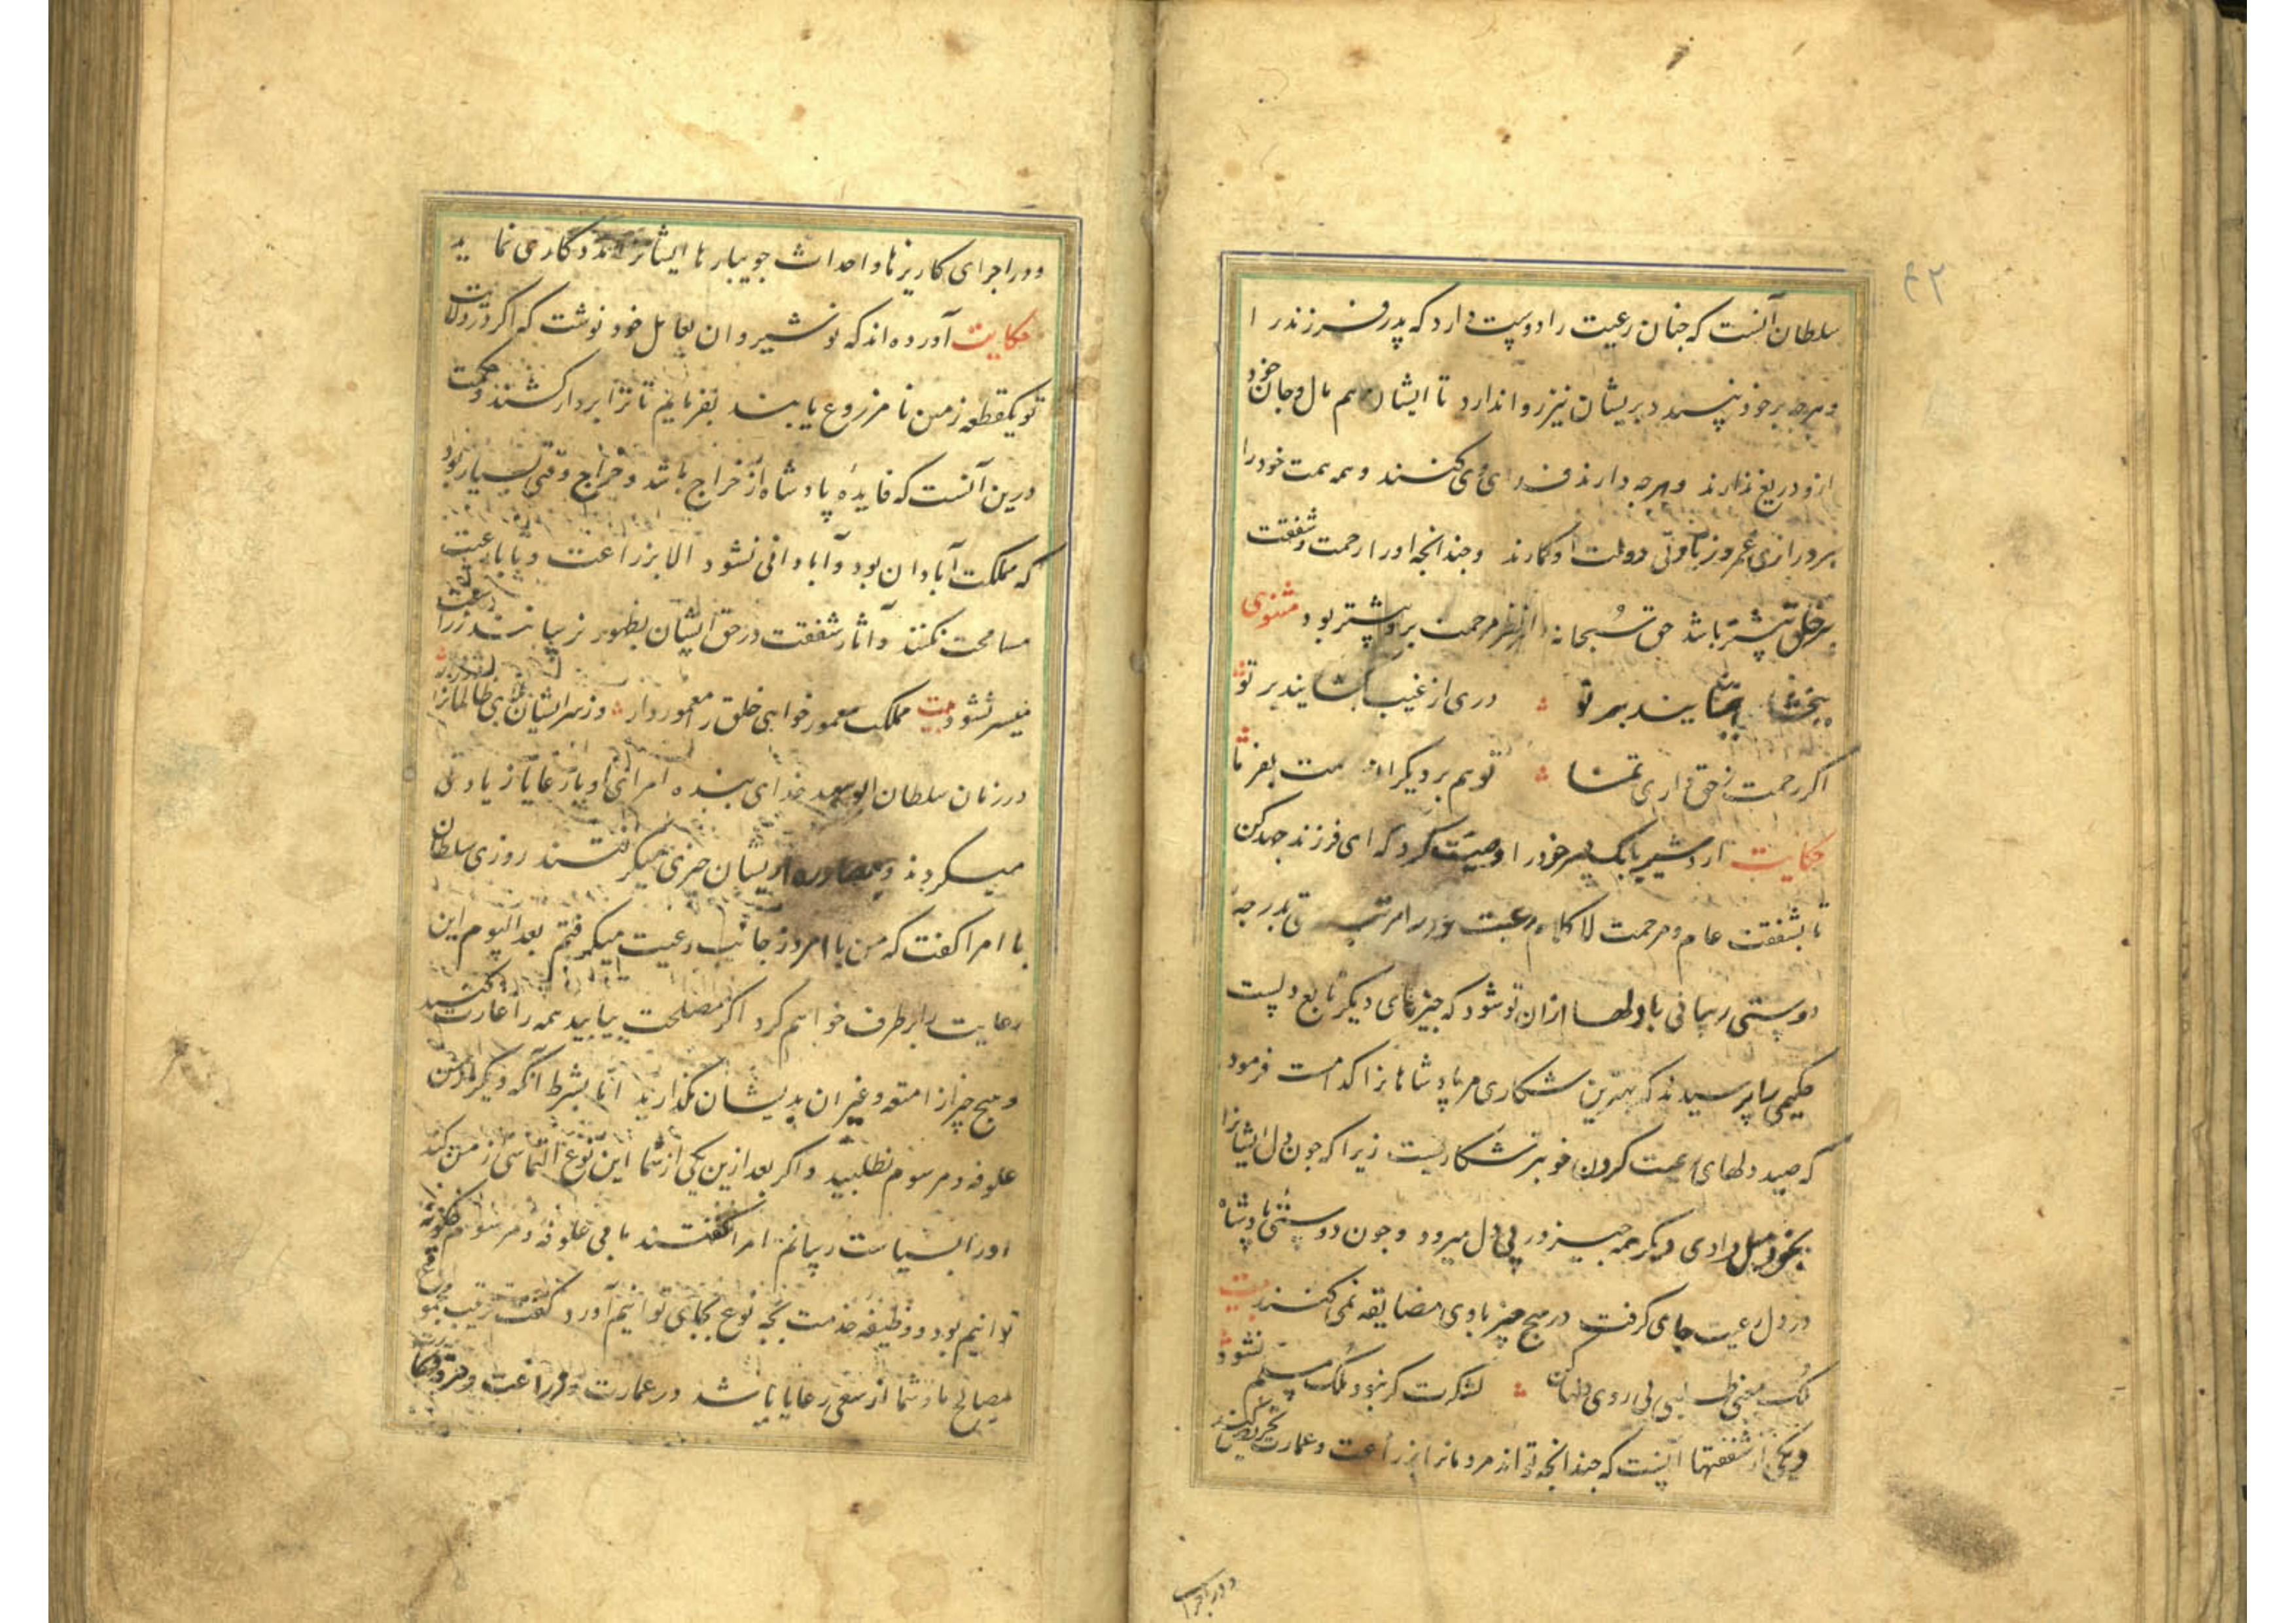 ۴۲
سلطان آنست که چنان رعیت را دوست دارد که پدر فرزند را
و هرچه بر خود نپسندد بریشان نیز روا ندارد تا ایشان هم مال و جان خود
ازو دریغ ندارند و هرچه دارند فدای وی کنند و همه همت خود را
بر درازی عمر و زیادتی دولت او کمارند و چندانچه او را رحمت و شفقت
بر خلق بیشتر باشد حق سبحانه از نظر مرحمت برو بیشتر بود مثنوی
ببخشا تا ببخشایند بر تو دری از غیب بکشایند بر تو
اکر رحمت ز حق داری تمنا تو هم بر دیکران رحمت بفرما
حکایت اردشیر بابک پسر خود را وصیت کرد که ای فرزند جهد کن
تا بشفقت عام و مرحمت لاکلام رعیت را از مرتبه رعیتی بدرجهٔ
دوستی رسانی با دلها از ان تو شود که چیزهای دیکر تابع دلست
حکیمی را پرسیدند که بهترین شکاری مر پادشاهانرا کدامست فرمود
که صید دلهای رعیت کردن خوبتر شکاریست زیرا که چون دل ایشانرا
بخود میل دادی دیکر همه چیز در پی دل میرود و چون دوستی پادشاه
در دل رعیت جای کرفت در هیچ چیز با وی مضایقه نمی کنند بیت
ملک معنی طلبی روی دلها کن لشکرت کر نبود ملک مسلم نشود
و یکی از شفقتها آنست که چندانچه تواند مردمانرا بزراعت و عمارت تحریض کند
و در اجرای
و در اجرای کاریزها و احداث جویبارها ایشانرا مددکاری نماید
حکایت آورده اند که نوشیروان بعامل خود نوشت که اکر در ولایت
تو یکقطعه زمین نا مزروع یابند بفرمایم تا ترا بر دار کشند و حکمت
درین آنست که فایدهٔ پادشاه از خراج باشد و خراج وقتی بسیار بود
که مملکت آبادان بود و آبادانی نشود الا بزراعت و تا با رعیت
مسامحت نکنند و آثار شفقت در حق ایشان بظهور نرسانند زراعت
میسر نشود بیت مملکت معمور خواهی خلق را معمور دار وز سر ایشان ظالمانرا دور دار
در زمان سلطان ابوسعید خدای بنده امرای او با رعایا زیادتی
میکردند و بمصادره از یشان چیزی میکرفتند روزی سلطان
با امرا کفت که من تا امروز جانب رعیت میکرفتم بعد الیوم این
رعایت را بر طرف خواهم کرد اکر مصلحت بیابید همه را غارت کنید
و هیچ چیز از امتعه و غیر ان بدیشان نکذارید اما بشرط آنکه دیکر از من
علوفه و مرسوم نطلبید و اکر بعد ازین یکی از شما این نوع التماسی از من کند
او را بسیاست رسانم امرا کفتند ما بی علوفه و مرسوم چکونه
توانیم بود و وظیفه خدمت بچه نوع بجای توانیم آورد کفت ترتیب مجموع
مصالح ما و شما از سعی رعایا باشد در عمارت و زراعت و حرفتها